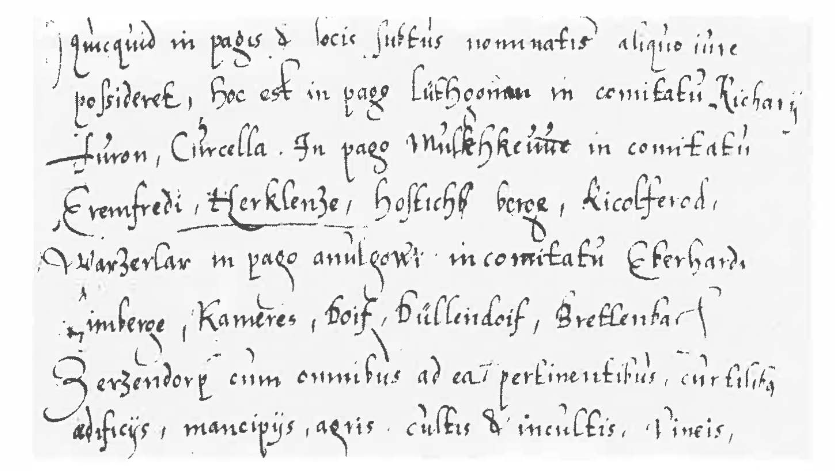 quicquid in pagis & locis subtus nominatis aliquo iure
possideret, hoc est in pago Luthgonau in comitatu Richarij
Furon, Curcella. In pago Mulkhkeuue in comitatu
Eremfredi, Herklenze, hostichs berge, Ricolferod,
Warzerlar in pago anulgowi in comitatu Eberhardi
Limberge, Kameres, boif, büllendoif, Brettenbach
Zerzendorp cum omnibus ad ea pertinentibus, curtilibus
ædificijs, mancipijs, agris cultis & incultis, Vineis,